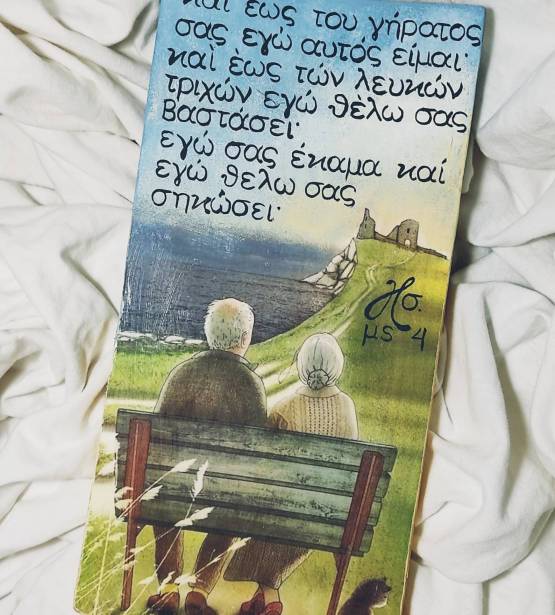 και έως του γήρατος
σας εγώ αυτός είμαι·
καί ὲως τών λευκών
τριχών εγώ θέλω σας
βαστάσει·
εγώ σας έκαμα καί
εγώ θελω σας
σηκώσει·
Ησ.
μς 4